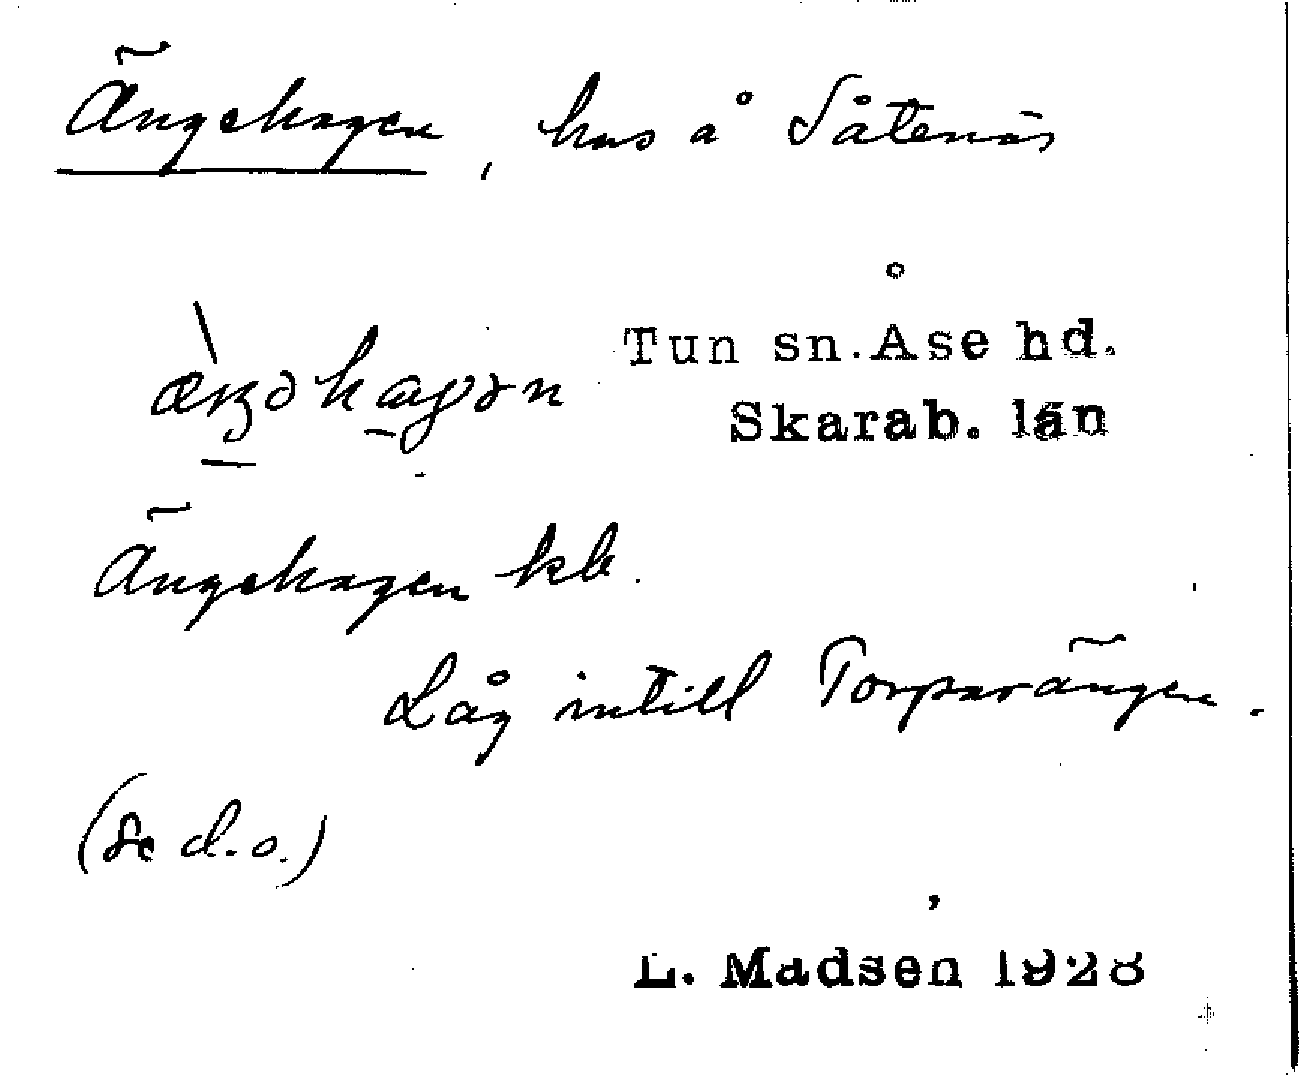 Ängehagen, hus å Såtenäs
Tun sn. Åse hd.
Skarab. län
Ängehagen kb.
Låg intill Torparängen.
(Se d.o.)
L. Madsen 1928